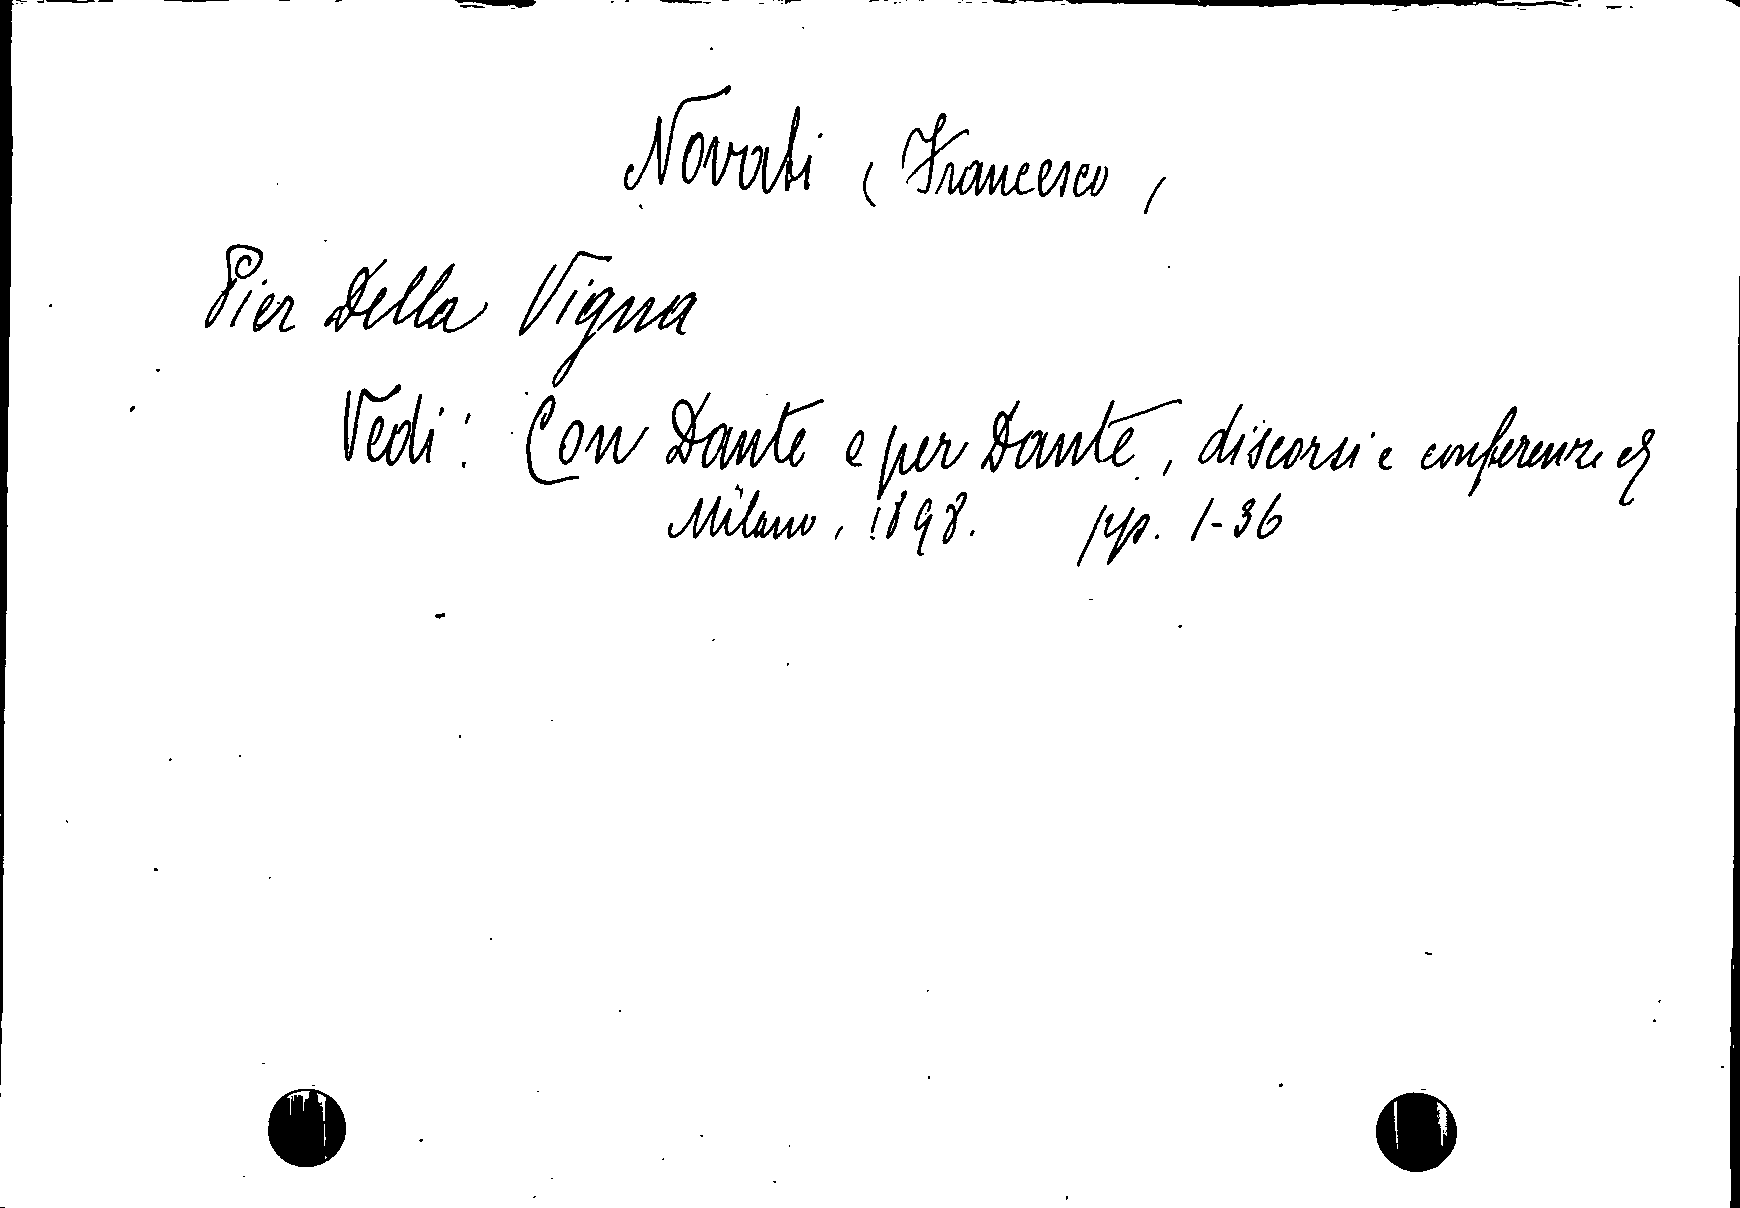 Novati (Francesco)
Pier Della Vigna
Vedi: Con Dante e per Dante, discorsi e conferenze &
Milano, 1898. pp. 1-36